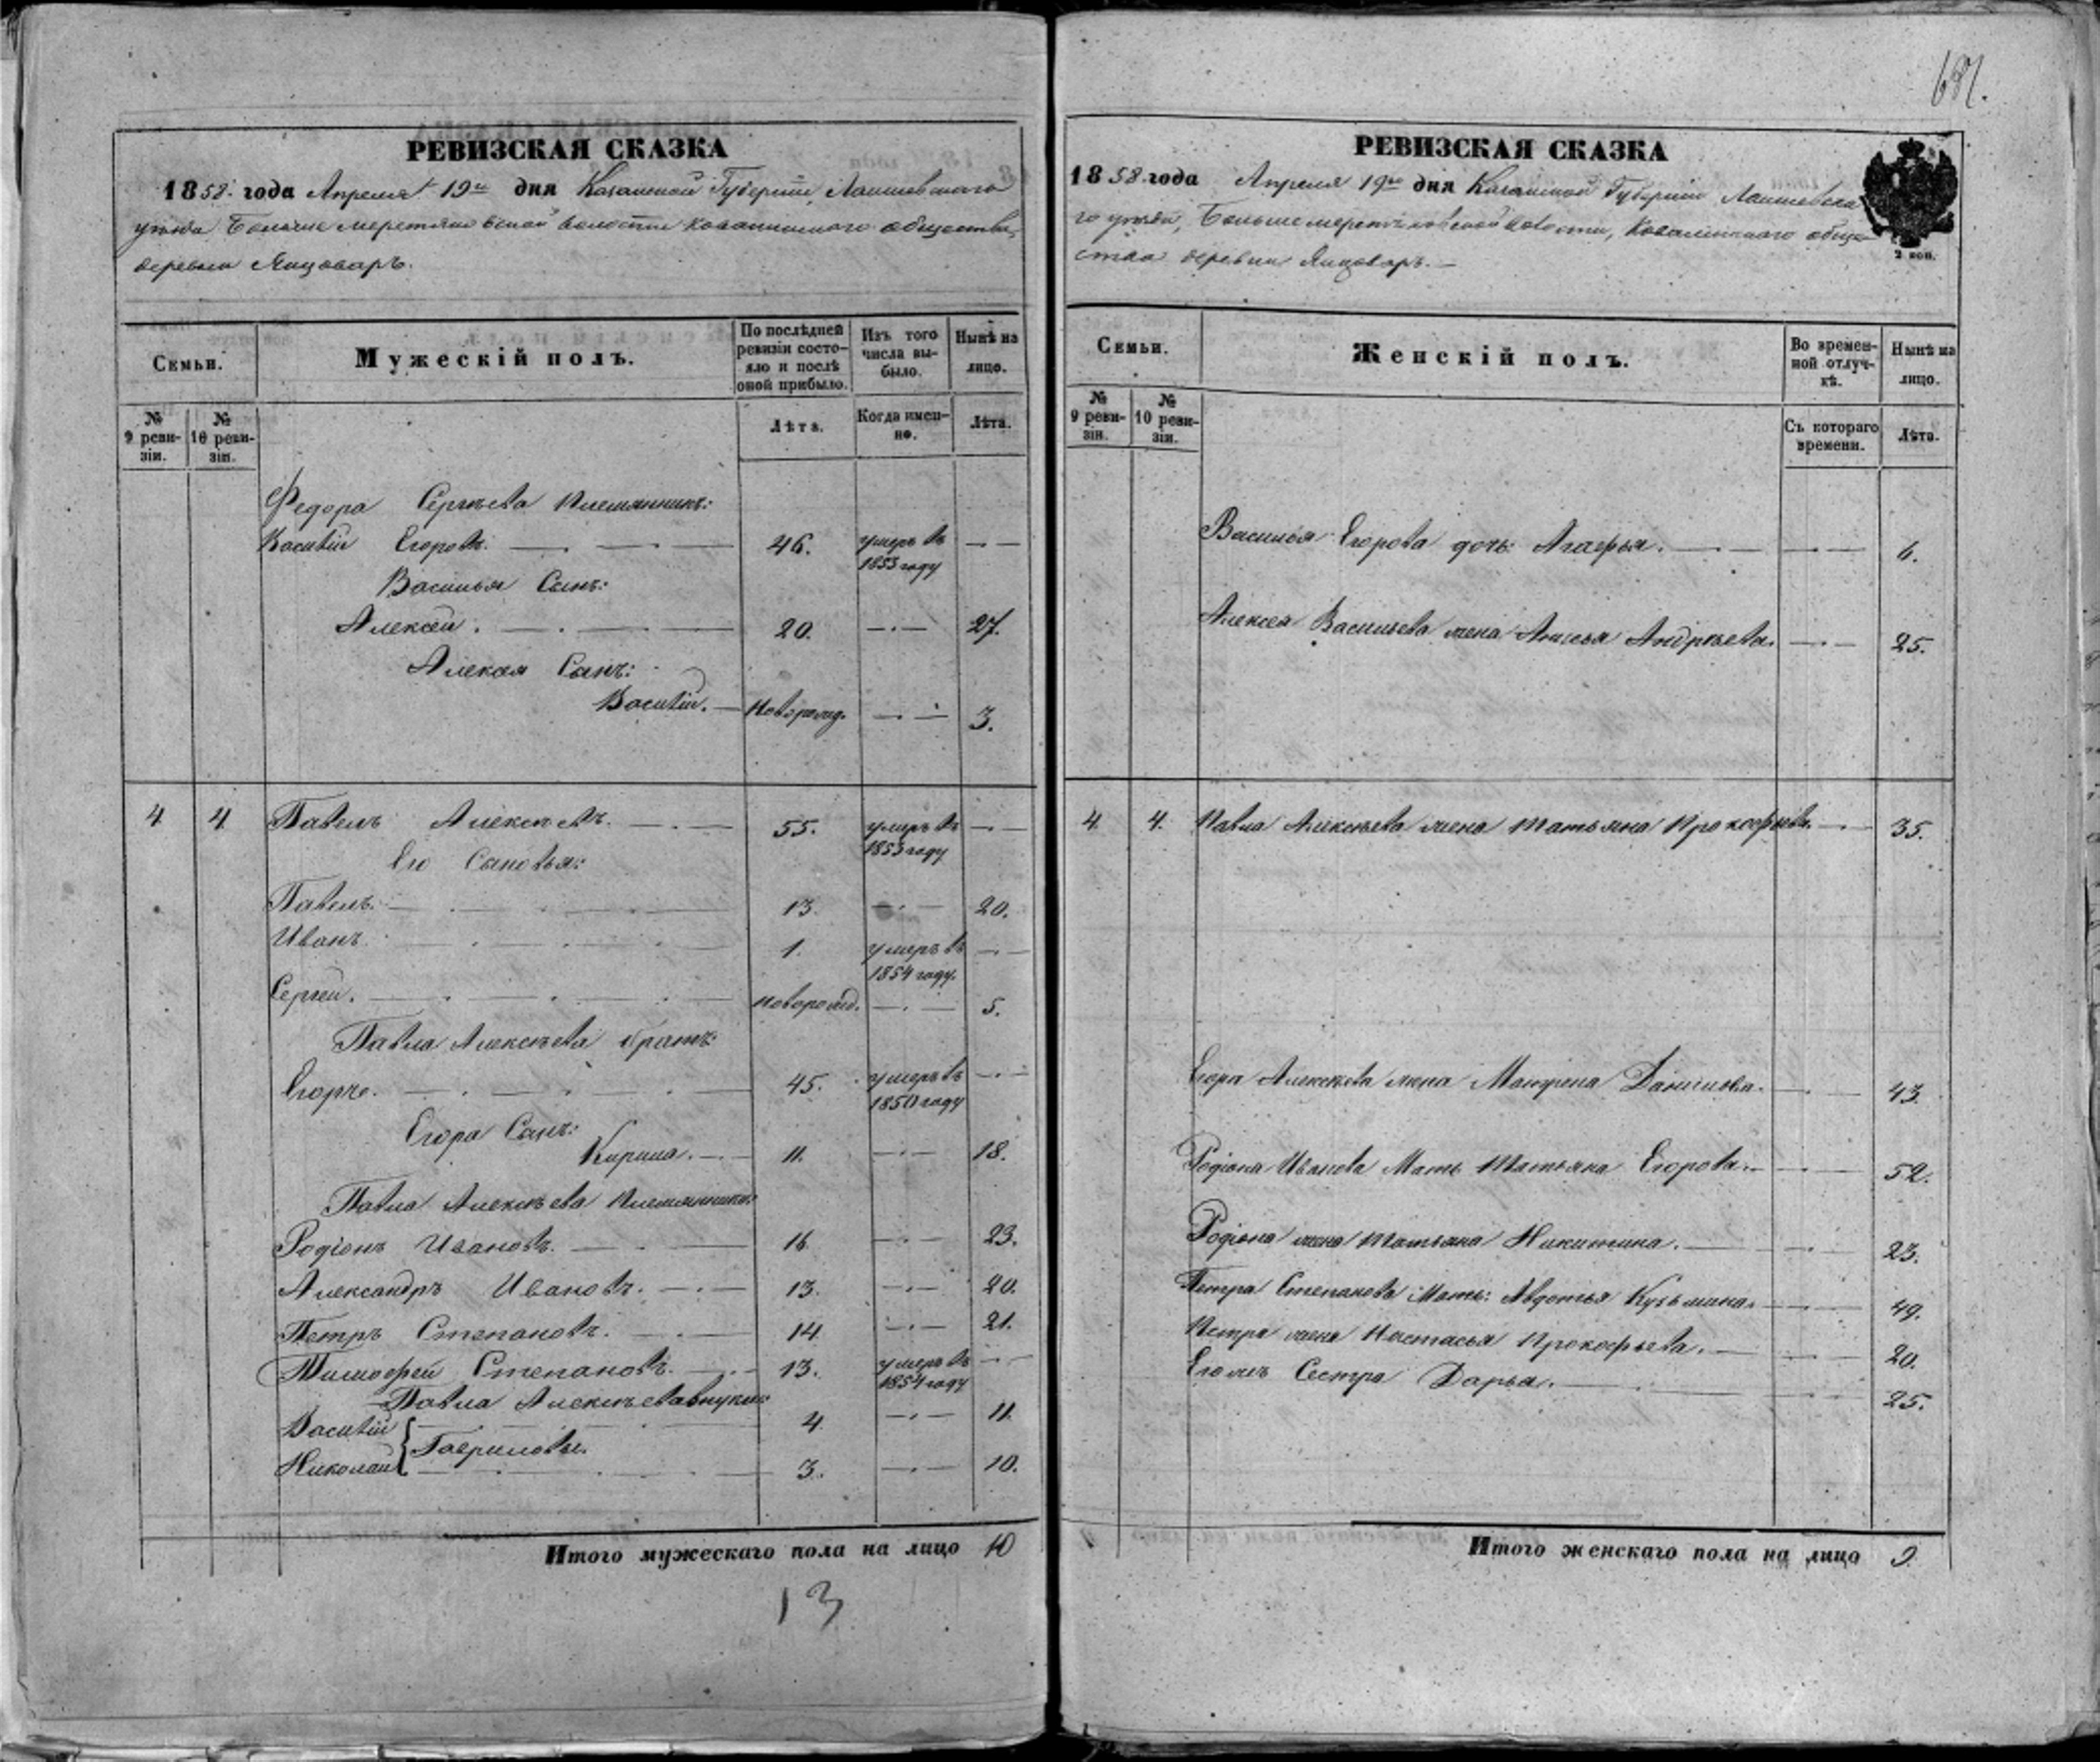 РЕВИЗСКАЯ СКАЗКА
1858. года Апреля 19го дня Казанской Губернии, Лаишевскаго
уѣзда Больше меретяковской волости Ковалинскаго общества,
деревни Янцоваръ.
Семьи.
Мужескій полъ.
По послѣдней ревизіи состо-
яло и послѣ
оной прибыло.
Изъ того
числа вы-
было.
Нынѣ на
лицо.
№
9 реви-
зіи.
№
10 реви-
зіи.
Лѣта.
Когда имен-
но.
Лѣта.
Федора Сергѣева племянникъ:
Василій Егоровъ. 46. умеръ въ
1853 году
Василья Сынъ:
Алексѣй. 20. 27.
Алексея Сынъ:
Василій. Новорожд. 3.
4 4 Павелъ Алексѣевъ. 55. умеръ въ
1853 году
Его Сыновья:
Павелъ. 13. 20.
Иванъ. 1. умеръ въ
1854 году.
Сергей. новорожд. 5.
Павла Алексѣева братъ:
Егоръ. 45. умеръ въ
1850 году
Егора Сынъ:
Кирила. 11. 18.
Павла Алексѣева племянники:
Родіонъ Ивановъ. 16 23.
Александръ Ивановъ. 13. 20.
Петръ Степановъ. 14 21.
Тимофей Степановъ. 13. умеръ въ
1854 году
Павла Алексѣева внуки:
Василій 4. 11.
Гавриловы.
Николай 3. 10.
Итого мужескаго пола на лицо 10
13
687.
РЕВИЗСКАЯ СКАЗКА
1858. года Апреля 19го дня Казанской Губерніи Лаишевска
го уѣзда, Больше меретяковской волости, Ковалинскаго обще-
ства деревни Янцоваръ.
2 коп.
Семьи.
Женскій полъ.
Во времен-
ной отлуч-
кѣ.
Нынѣ на
лицо.
№
9 реви-
зіи.
№
10 реви-
зіи.
Съ котораго
времени.
Лѣта.
Василья Егорова дочь Агафья. 6.
Алексея Васильева жена Анисья Андрѣева. 25.
4 4. Павла Алексѣева жена Татьяна Прокофьева. 35.
Егора Алексѣева жена Матрена Данилова. 43.
Родіона Иванова Мать Татьяна Егорова. 52.
Родіона жена Татьяна Никитина. 23.
Петра Степанова Мать: Авдотья Кузьмина. 49.
Петра жена Настасья Прокофьева. 20.
Его жъ Сестра Дарья. 25.
Итого женскаго пола на лицо 9.